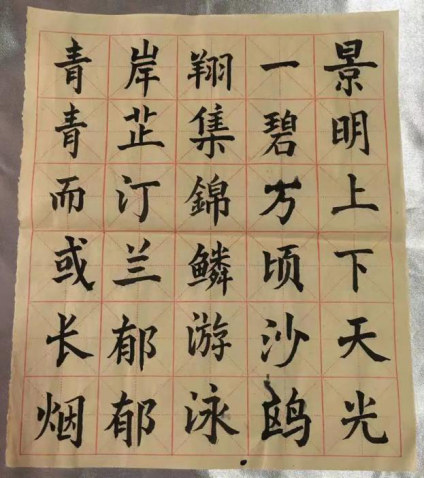 景明上下天光
一碧万顷沙鸥
翔集錦鳞游泳
岸芷汀兰郁郁
青青而或长烟